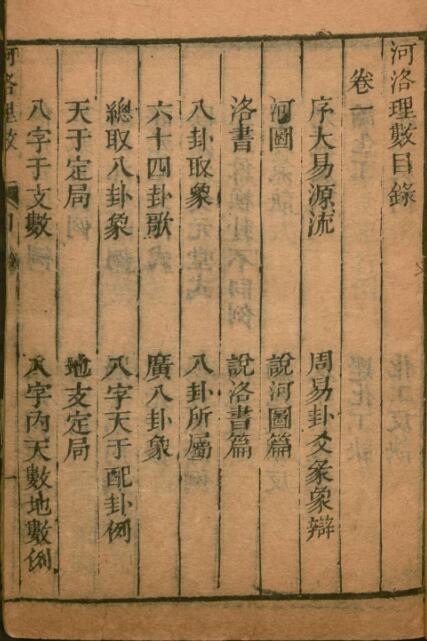 河洛理數目錄
卷一
序大易源流　周易卦爻彖象辯
河圖　說河圖篇
洛書　說洛書篇
八卦取象　八卦所屬
六十四卦歌　廣八卦象
總取八卦象　八字天干配卦例
天干定局　地支定局
八字干支數　八字內天數地數例
河洛理數　目錄　一